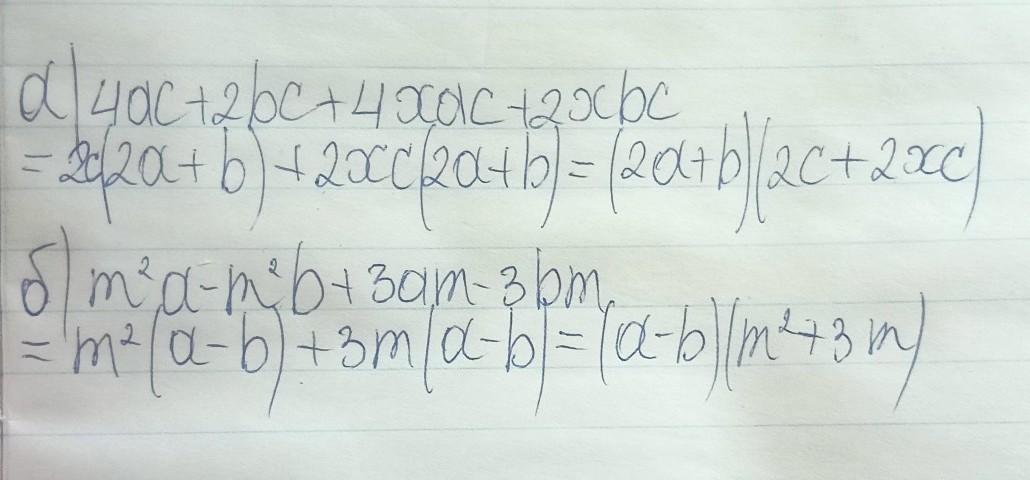 а) 4ac+2bc+4xac+2xbc
= 2c(2a+b)+2xc(2a+b)=(2a+b)(2c+2xc)
б) m²a-m²b+3am-3bm
= m²(a-b)+3m(a-b)=(a-b)(m²+3m)